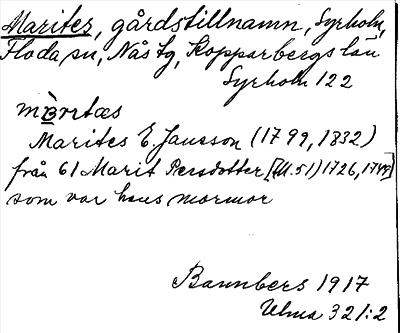 Marites, gårdstillnamn, Syrholn,
Floda sn, Nås tg, Kopparbergs län
Syrholn 122
Marites E. Jansson (1799, 1832)
från 61 Marit Persdotter, 1726,
som var hans mormor
Bannbers 1917
Ulma 321:2